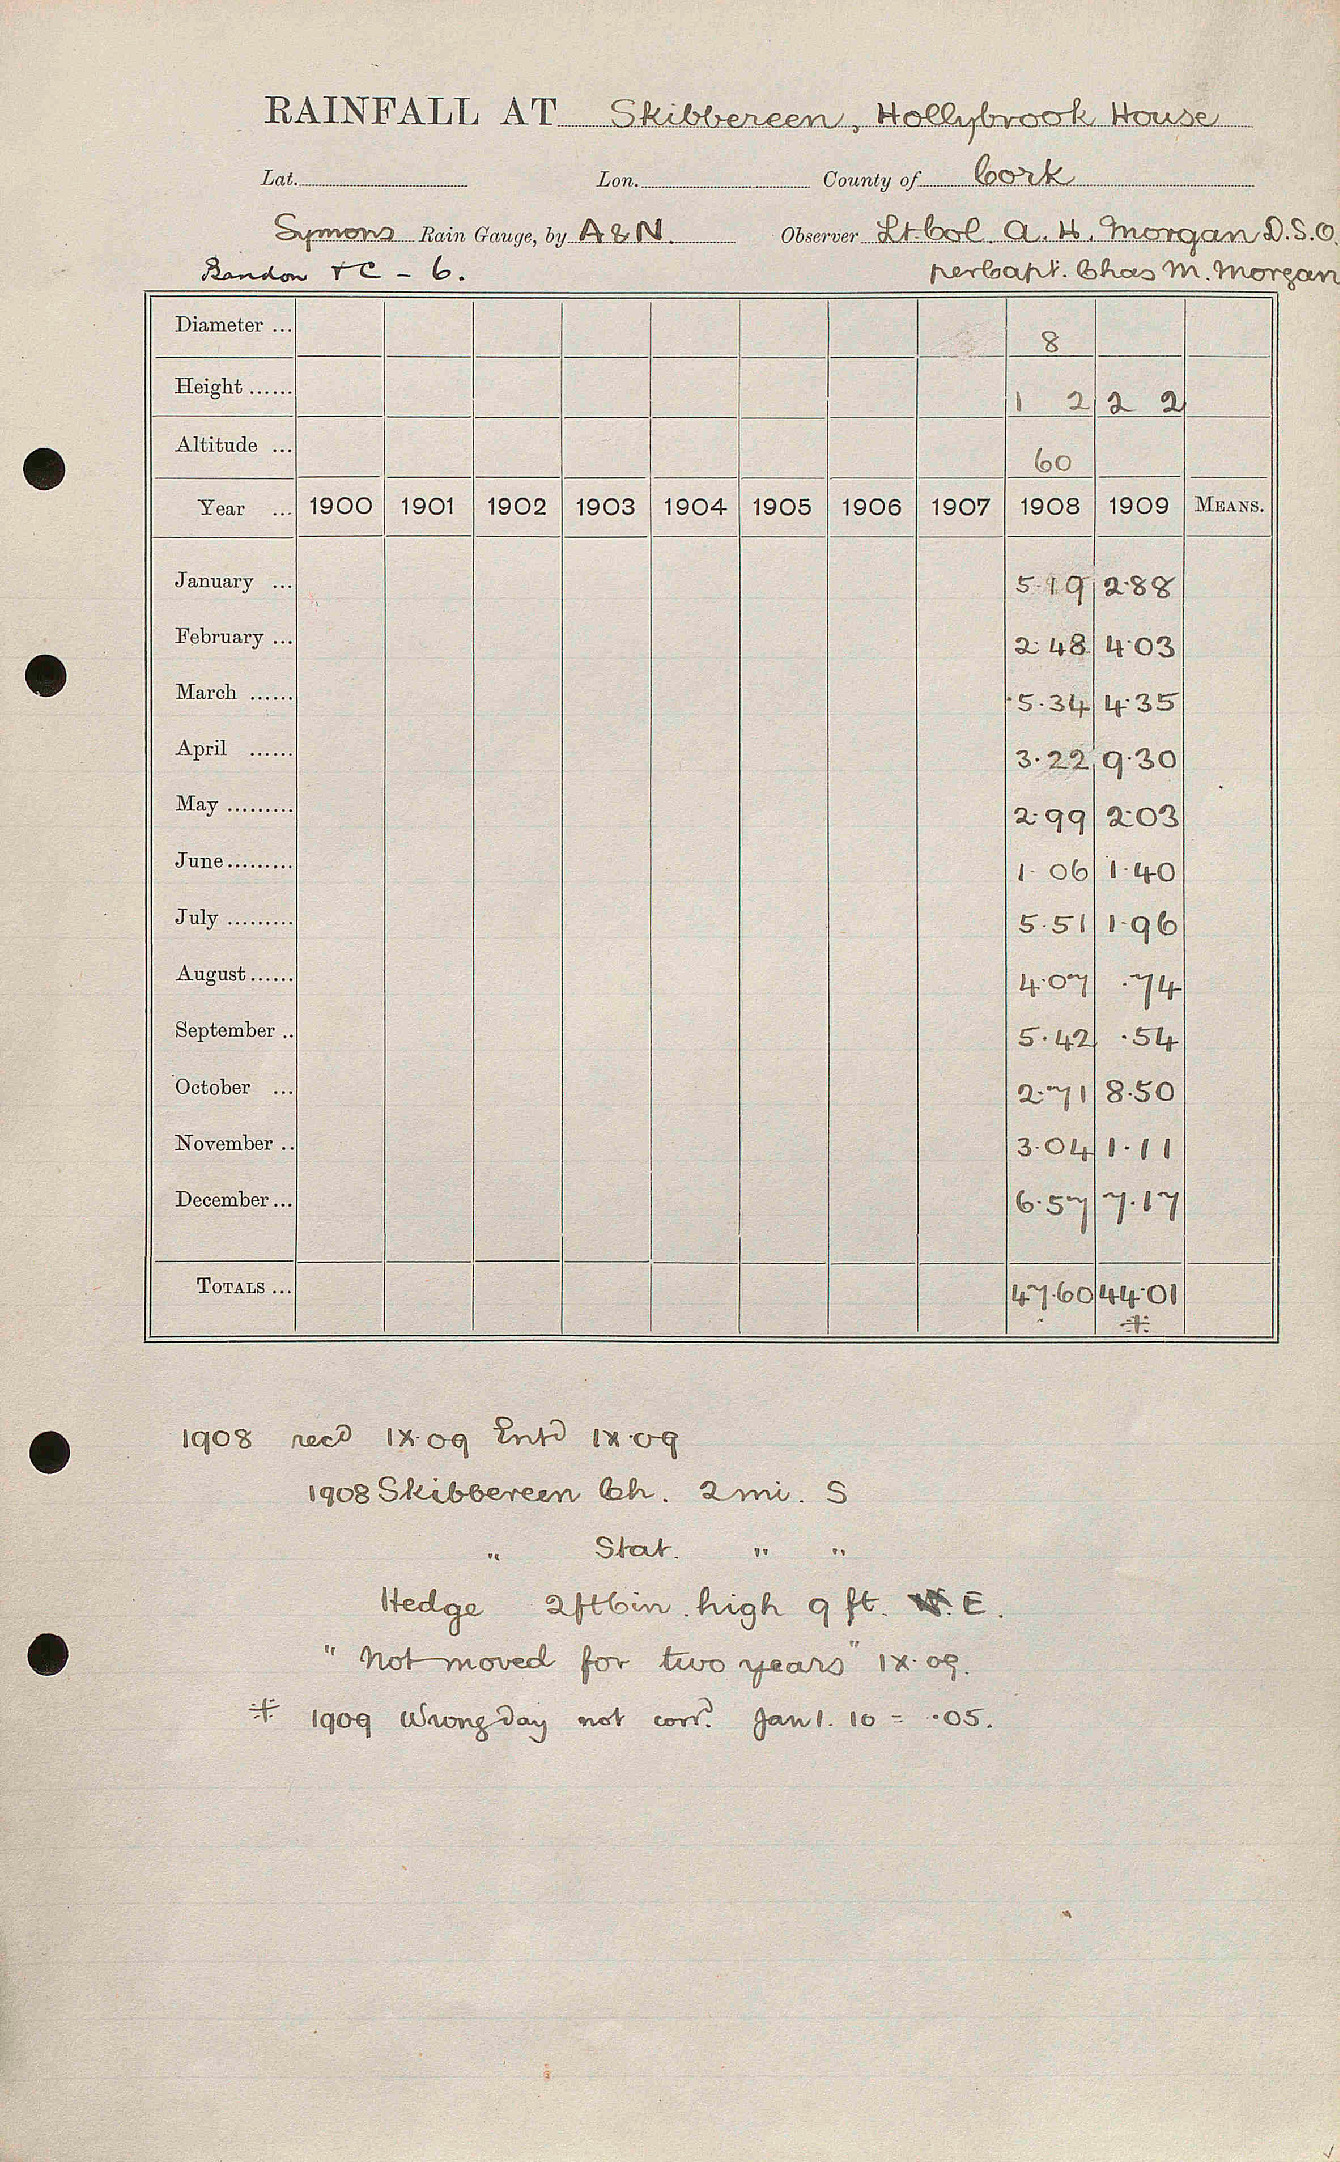 RAINFALL AT Skibbereen, Hollybrook House
Lat. Lon. County of Cork
Symons Rain Gauge, by A & N. Observer Lt. Col. A. H. Morgan D.S.O.
Bandon & C - 6. per Capt. Chas M. Morgan
Diameter ... 8
Height ...... 1 2 2 2
Altitude ... 60
Year ... 1900 1901 1902 1903 1904 1905 1906 1907 1908 1909 MEANS.
January ... 5.19 2.88
February ... 2.48 4.03
March ...... 5.34 4.35
April ...... 3.22 9.30
May ......... 2.99 2.03
June ......... 1.06 1.40
July ......... 5.51 1.96
August ...... 4.07 .74
September .. 5.42 .54
October ... 2.71 8.50
November .. 3.04 1.11
December ... 6.57 7.17
TOTALS ... 47.60 44.01
*
1908 recd IX.09 Entd IX.09
1908 Skibbereen Ch. 2 mi. S
" Stat. " "
Hedge 2ft 6in. high 9 ft. E.
"Not moved for two years" IX.09.
* 1909 Wrong day not corrd. Jan 1. 10 = .05.